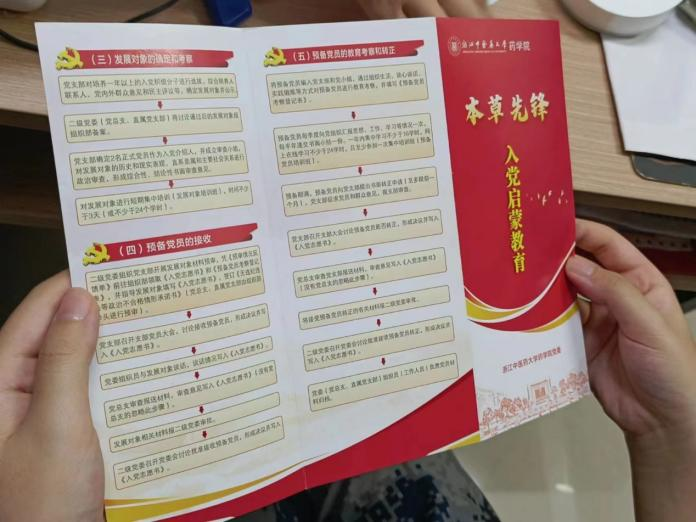 （三）发展对象的确定和考察
党支部对培养一年以上的入党积极分子进行选拔，综合培养人
联系人、党内外群众意见和民主评议等，确定发展对象并公示
二级党委（党总支、直属党支部）将讨论通过后的发展对象报
组织部备案。
党支部确定2名正式党员作为入党介绍人，并成立审查小组，
对发展对象的历史和现实表现、直系亲属和主要社会关系进行
政治审查，形成综合性、结论性书面审查意见。
对发展对象进行短期集中培训（发展对象培训班），时间不少
于3天（或不少于24个学时）。
（四）预备党员的接收
党支部召开支部党员大会，讨论接收预备党员，形成决议并写
入《入党志愿书》。
党委组织员与发展对象谈话，谈话情况写入《入党志愿书》。
党总支审查报送材料，审查意见写入《入党志愿书》（没有党
总支的忽略此步骤）。
发展对象相关材料报二级党委审批。
二级党委召开党委会讨论批准接收预备党员，形成决议并写入
《入党志愿书》。
（五）预备党员的教育考察和转正
将预备党员编入党支部和党小组，通过组织生活、谈心谈话、
实践锻炼等方式对预备党员进行教育考察，并填写《预备党员
考察登记表》。
预备党员每季度向党组织汇报思想、工作、学习等情况一次，
每半年递交书面小结一份，一年内集中学习不少于16学时，网
上在线学习不少于24学时，且至少参加一次集中培训班（预备
党员培训班）。
预备期满，预备党员向党支部提出书面转正申请（至多提前一
个月），党支部征求党员和群众意见，报支部审查。
党支部召开支部大会讨论预备党员能否转正，形成决议并写入
《入党志愿书》。
党总支审查党支部报送材料，审查意见写入《入党志愿书》
（没有党总支的忽略此步骤）。
将接受预备党员转正的有关材料报二级党委审批。
二级党委召开党委会讨论批准接收预备党员转正，形成决议并
写入《入党志愿书》。
党委（党总支、直属党支部）组织员（工作人员）负责党员材
料归档。
浙江中医药大学 药学院
本草先锋
入党启蒙教育
浙江中医药大学药学院党委